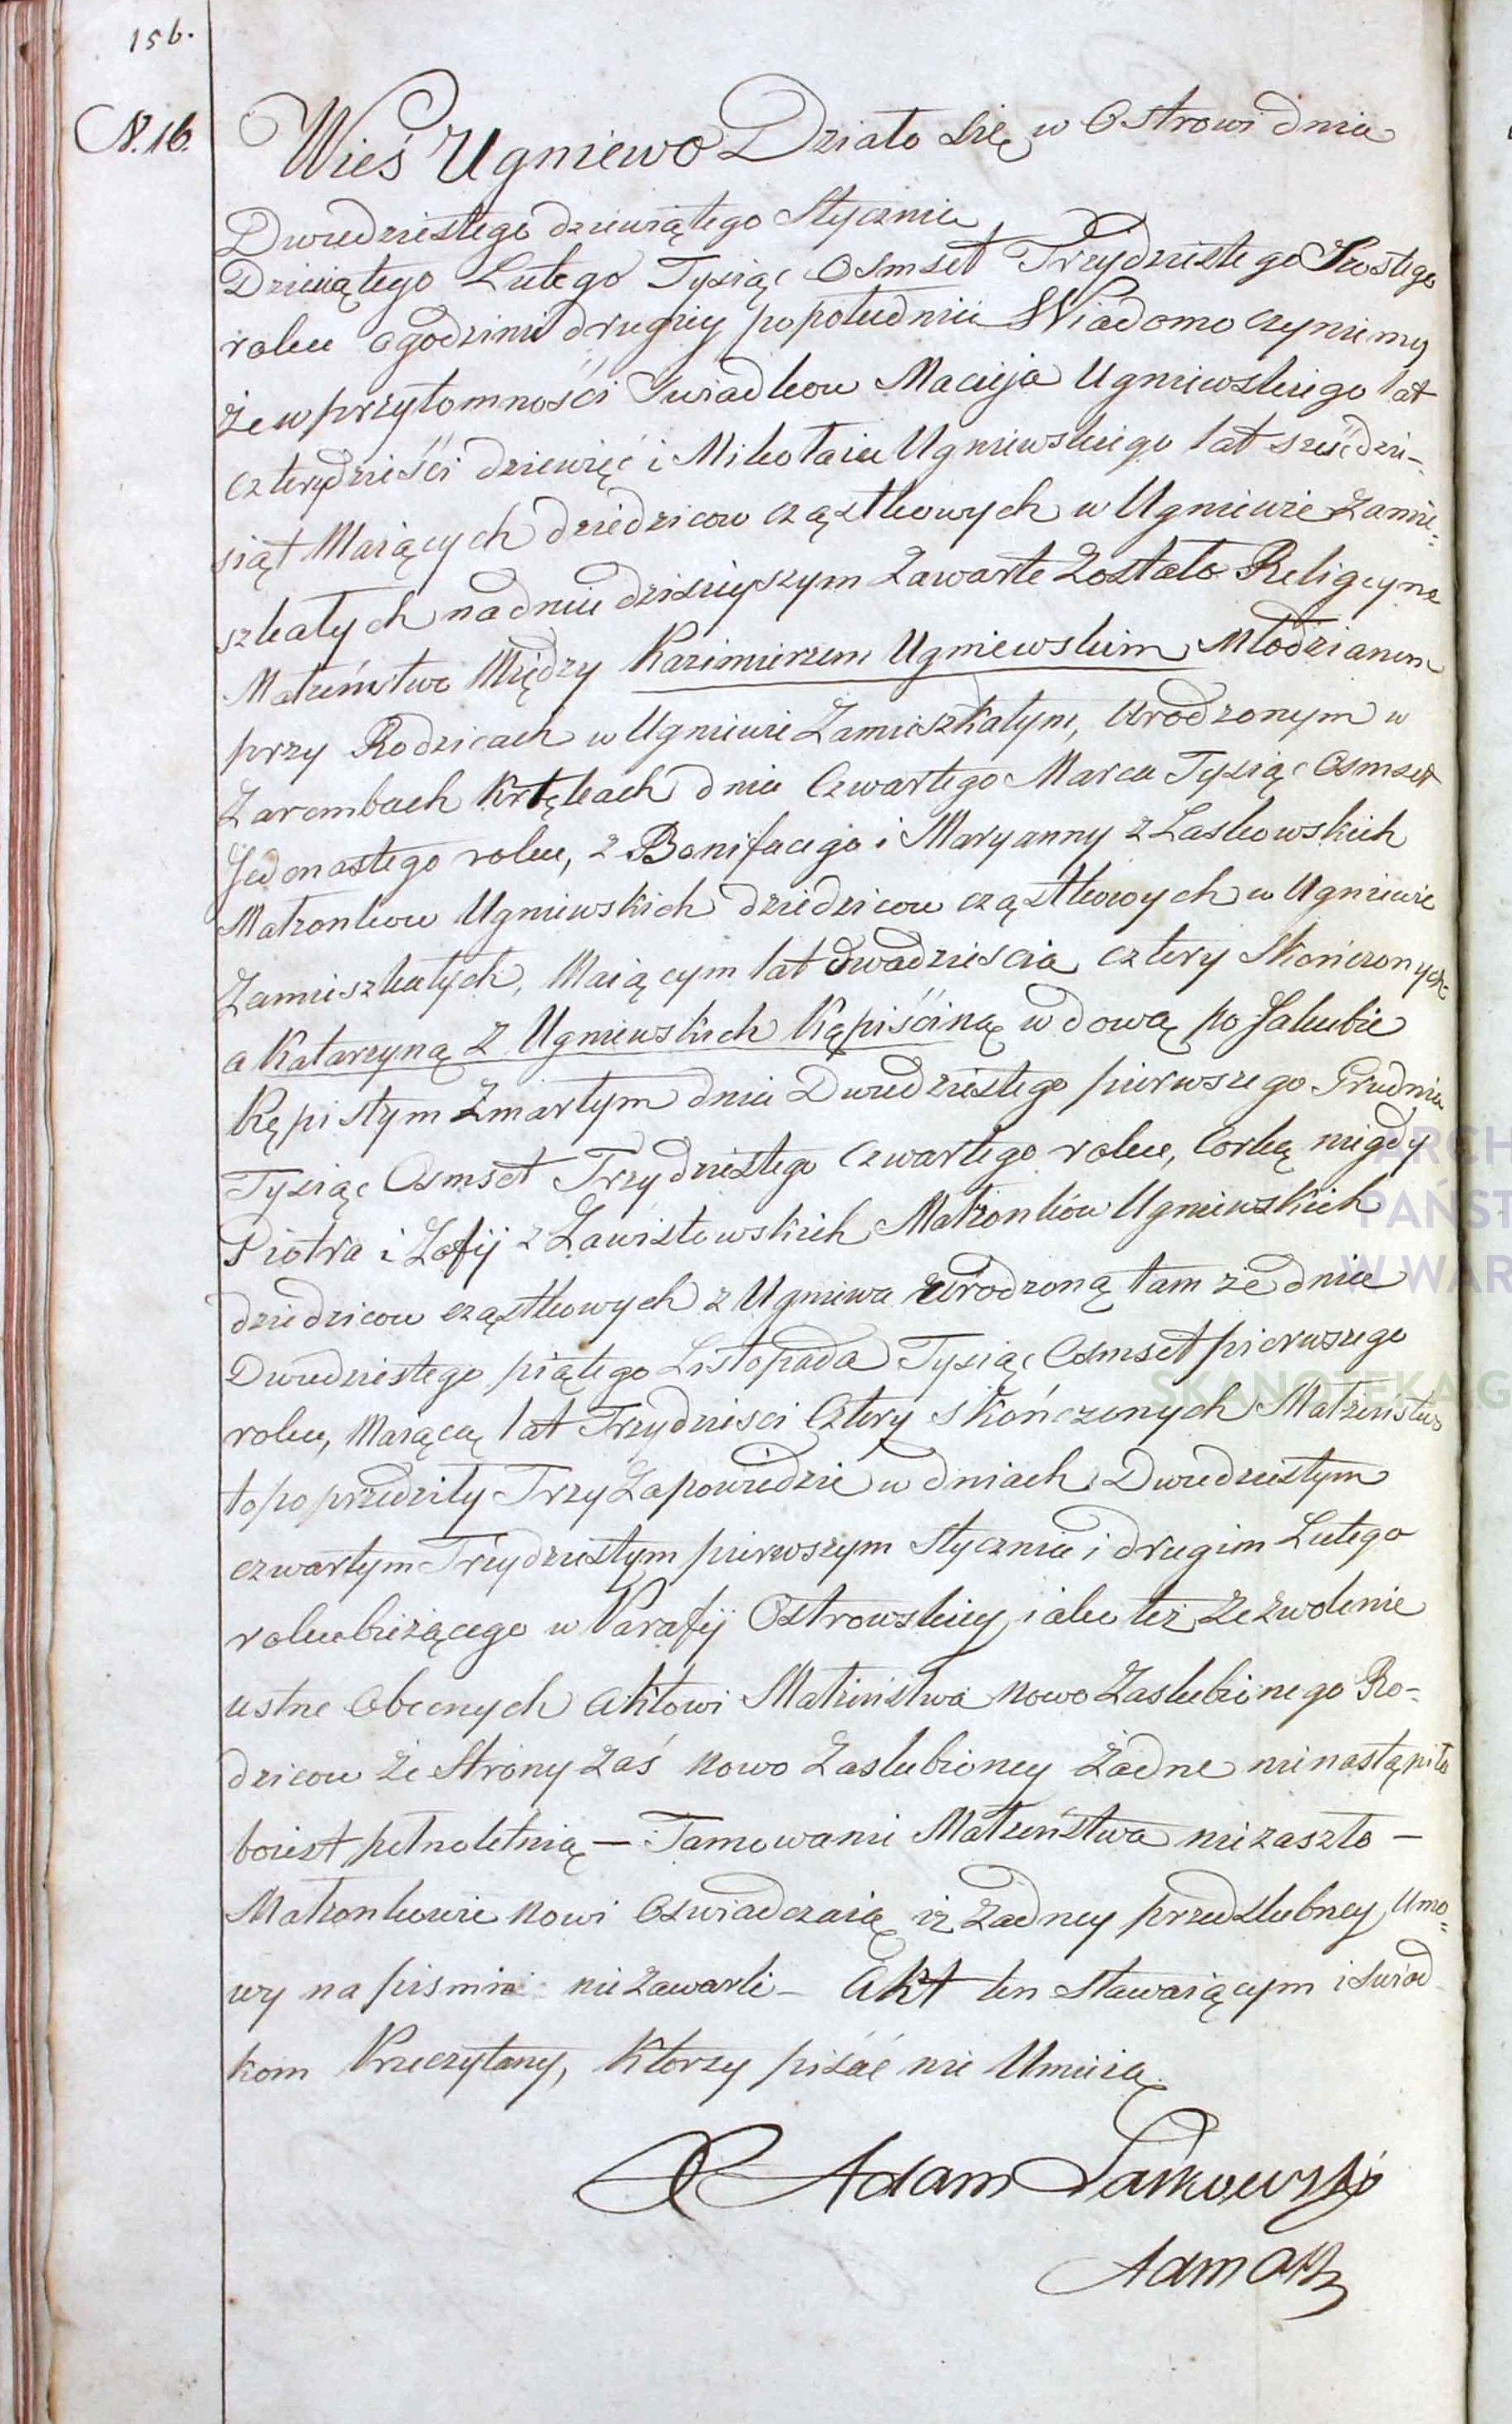 156.
N. 16.
Wieś Ugniewo Działo się w Ostrowi dnia
Dwudziestego dziewiątego Stycznia
Dziewiątego Lutego Tysiąc Osmset Trzydziestego Szostego
roku ogodzinie drugiey popołudniu Wiadomo czyniemy
że w przytomności Swiadkow Macieja Ugniewskiego lat
czterydzieści dziewięć i Mikołaia Ugniewskiego lat sześćdzie-
siąt Maiących dziedzicow cząstkowych w Ugniewie Zamie=
szkałych na dniu dzisieyszym Zawarte Zostało Religiyne
Małżeństwo Między Kazimierzem Ugniewskim Młodzianem
przy Rodzicach w Ugniewie Zamieszkałym, Urodzonym w
Zarembach Krtękach dnia Czwartego Marca Tysiąc Osmset
Jedenastego roku, z Bonifacego i Maryanny z Laskowskich
Małzonkow Ugniewskich dziedzicow cząstkowych w Ugniewie
Zamieszkałych, Maiącym lat dwadziescia cztery Skończonych
a Katarzyną z Ugniewskich Kępiściną wdową po Jakubie
Kępistym Zmarłym dnia Dwudziestego pierwszego Grudnia
Tysiąc Osmset Trzydziestego Czwartego roku, Corką niegdy
Piotra i Zofij z Zawistowskich Małżonków Ugniewskich
dziedzicow cząstkowych z Ugniewa Urodzoną tam że dnia
Dwudziestego piątego Listopada Tysiąc Osmset pierwszego
roku, Maiącą lat Trzydzieści Cztery skończonych Małżeństwo
to poprzedziły Trzy Zapowiedzie w dniach Dwudziestym
czwartym Trzydziestym pierwszym Stycznia i drugim Lutego
roku bieżącego w Parafij Ostrowskiey, iako też Zezwolenie
ustne Obecnych Aktowi Małżeństwa Nowo Zaslubionego Ro-
dzicow Ze Strony Zaś Nowo Zaslubioney Żadne nienastąpiło
boiest pełnoletnią — Tamowanie Małżeństwa niezaszło —
Małzonkowie Nowi Oswiadczaią iż Żadney przedslubney Umo=
wy na pismie niezawarli – Akt ten Stawaiącym i Swiad
kom Przeczytany, Ktorzy pisać nie Umieią.
X Adam Laikowski
ARCH
PAŃST
W WAR
SKANOTEKA.G